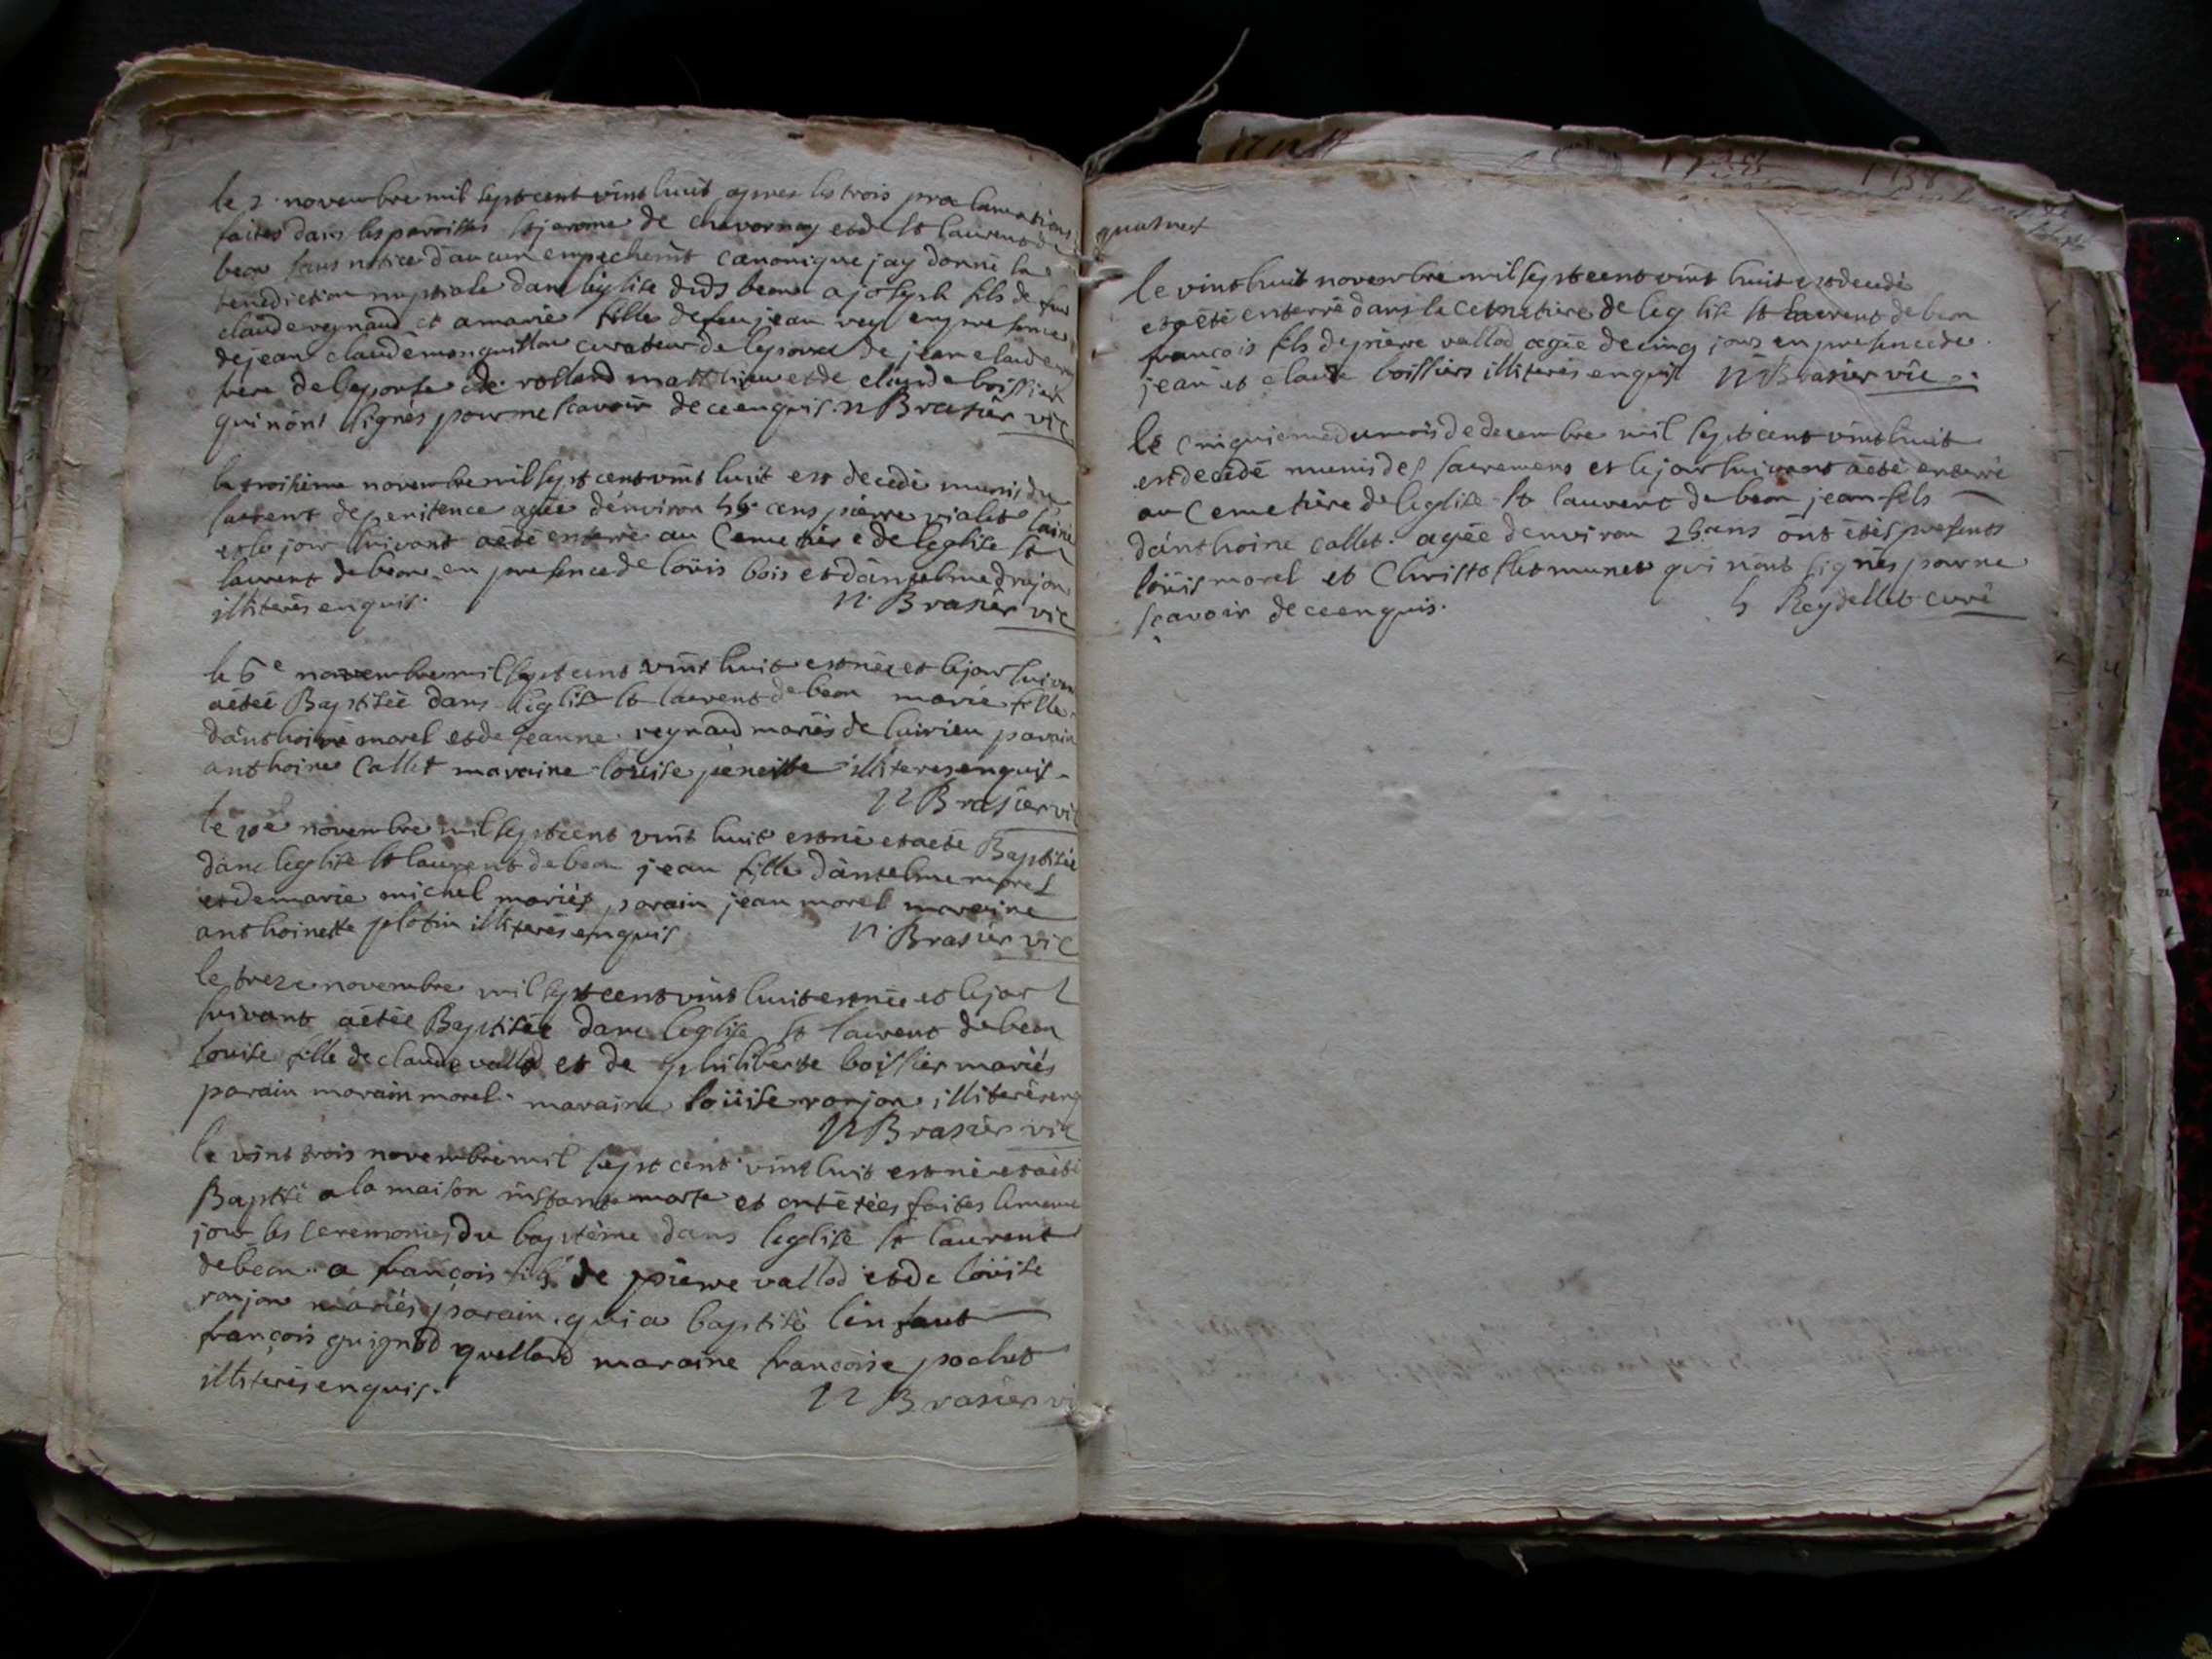 le 2 novembre mil septcent vint huit apres les trois proclamations
faites dans les paroisses st jerome de chavornay et de st laurent de
beon sans notice daucun empechemt canonique jay donné la
benediction nuptiale dans leglise duds beon a joseph fils de feu
claude reynaud et a marie fille de feu jean rey en presence
de jean claude curateur de lepouse de jean claude
frere de lepouse de rolland matthieu et de claude boissier
qui nont signés pour ne scavoir de ce enquis. n Brasier vic
le troisieme novembre mil septcent vint huit est decedé munis du
sacrent de penitence agée denviron ans pierre vialet lainé
et le jour suivant aeté enterré au Cemetiere de leglise st
laurent de beon en presence de loüis bois et danselme drujon
illiterés enquis. n. Brasier vic
le 6e novembre mil septcent vint huit est née et le jour suivan
aétée Baptisée dans leglise st laurent de beon marie fille
danthoine morel et de jeanne reynaud mariés de luirieu parain
anthoine Callet maraine loüise illiteres enquis.
n Brasier vic
le 10e novembre mil septcent vint huit est né et aeté Baptisée
dans leglise st laurent de beon jean fille danselme morel
et de marie michel mariés parain jean morel maraine
anthoinette illiterés enquis n. Brasier vic
le treze novembre mil septcent vint huit est née et le jour
suivant aétée Baptisée dans leglise st laurent de beon
louise fille de claude vallod et de philiberte boissier mariés
parain marain morel. maraine loüise ronjon illiterés enq
n Brasier vic
le vint trois novembre mil septcent vint huit est né et aété
Baptisé a la maison instante morte et ont étées faites le meme
jour les ceremonies du baptême dans leglise st laurent
de beon a françois fils de pierre vallod et de loüise
ronjon mariés parain qui a baptisé lenfant
françois guignod maraine françoise pochet
illiterés enquis. n Brasier vi
le vint huit novembre mil septcent vint huit est decedé
et aété enterré dans le cemetiere de leglise st laurent de beon
francois fils de pierre vallod agée de cinq jours en presence de
jean et claude boissiers illiterés enquis n Brasier vic.
le cinquieme du mois de decembre mil septcent vint huit
est decedé munis des sacremens et le jour suivant aeté enterré
au Cemetiere de leglise st laurent de beon jean fils
danthoine callet. agée denviron ans ont étés presents
loüis morel et Christofle munet qui nont signés pour ne
scavoir de ce enquis. Reydellet curé
1738